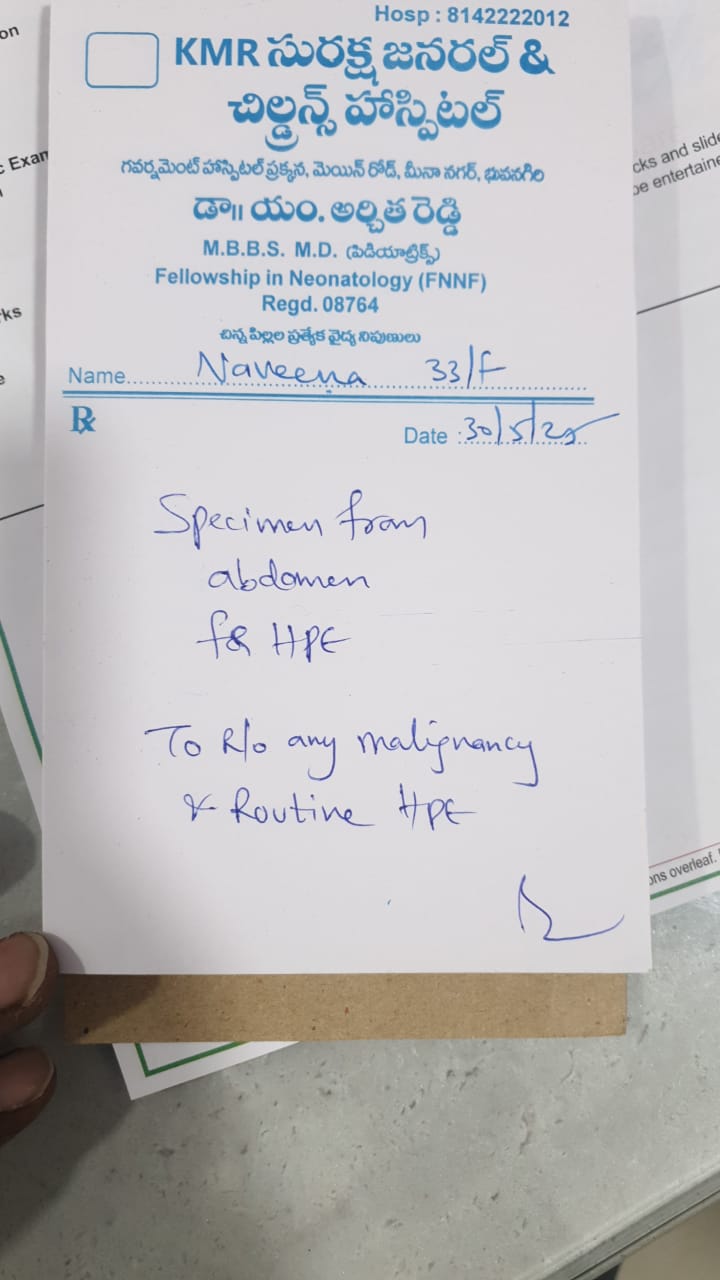 Hosp : 8142222012
KMR సురక్ష జనరల్ &
చిల్డ్రన్స్ హాస్పిటల్
గవర్నమెంట్ హాస్పిటల్ ప్రక్కన, మెయిన్ రోడ్, మీనా నగర్, భువనగిరి
డా॥ యం. అర్చిత రెడ్డి
M.B.B.S. M.D. (పిడియాట్రిక్స్)
Fellowship in Neonatology (FNNF)
Regd. 08764
చిన్న పిల్లల ప్రత్యేక వైద్య నిపుణులు
Name.......Naveena 33/F
Rx
Date : 30/5/25
Specimen from
abdomen
for HPE
To R/o any malignancy
& Routine HPE
on
c Exam
ks
cks and slide
be entertaine
ons overleaf.